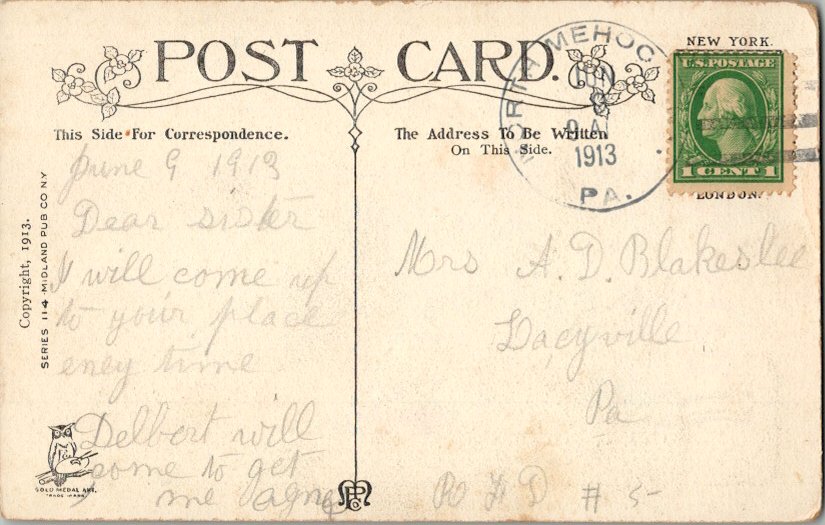 POST CARD.
NEW YORK.
U.S. POSTAGE
1 CENT 1
LONDON.
MEHOO
JUN
9 A
1913
PA.
This Side For Correspondence.
The Address To Be Written
On This Side.
Copyright, 1913.
SERIES 114 MIDLAND PUB CO NY
June 9 1913
Dear sister
I will come up
to your place
eney time
Delbert will
come to get
me agnes
GOLD MEDAL ART.
TRADE MARK
Mrs A. D. Blakeslee
Lacyville
Pa
R F D # 5